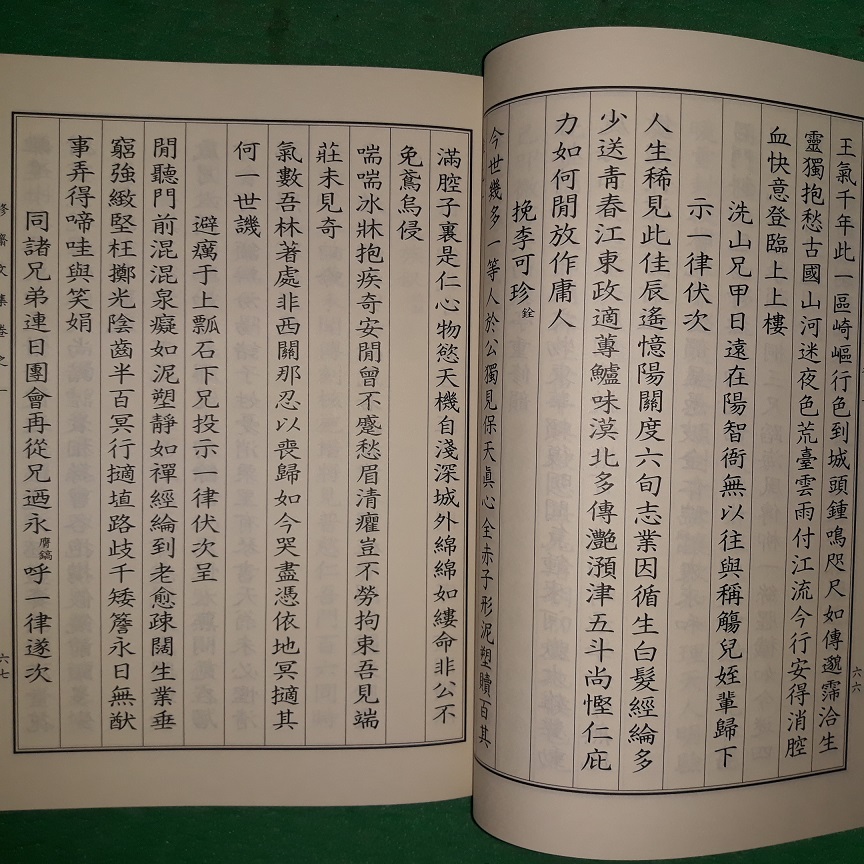 王氣千年此一區崎嶇行色到城頭鍾鳴咫尺如傳邈霈洽生
靈獨抱愁古國山河迷夜色荒臺雲雨付江流今行安得消腔
血快意登臨上上樓
洗山兄甲日遠在陽智衙無以往與稱觴兒姪輩歸下
示一律伏次
人生稀見此佳辰遙憶陽關度六旬志業因循生白髮經綸多
少送青春江東政適蓴鱸味漠北多傳灧澦津五斗尚慳仁庇
力如何閒放作庸人
挽李可珍銓
今世幾多一等人於公獨見保天眞心全赤子形泥塑贖百其
六六
滿腔子裏是仁心物慾天機自淺深城外綿綿如縷命非公不
免鳶烏侵
喘喘冰牀抱疾奇安閒曾不蹙愁眉清癯豈不勞拘束吾見端
莊未見奇
氣數吾林著處非西關那忍以喪歸如今哭盡憑依地冥擿其
何一世譏
避癘于上瓢石下兄投示一律伏次呈
閒聽門前混混泉癡如泥塑靜如禪經綸到老愈疎闊生業垂
窮強緻堅枉擲光陰齒半百冥行擿埴路歧千矮簷永日無猷
事弄得啼哇與笑娟
同諸兄弟連日團會再從兄迺永賡鎬呼一律遂次
修齋文集卷之一
六七